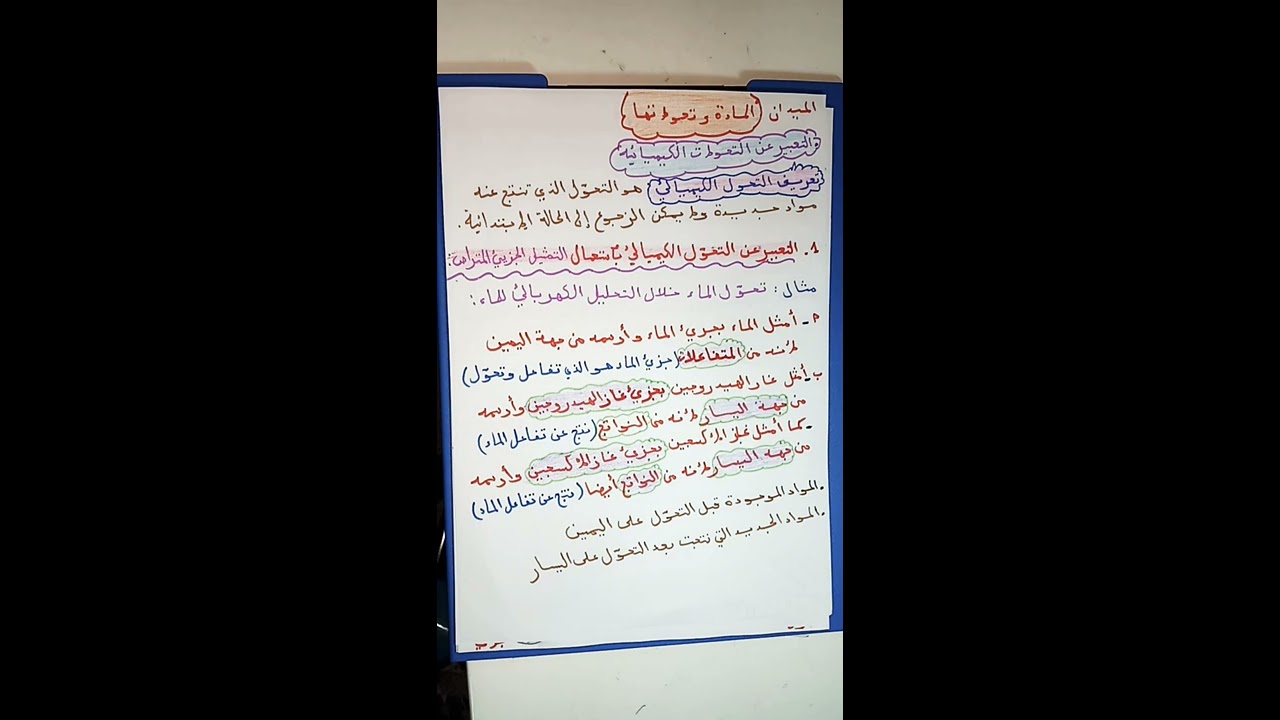 الميدان المادة وتحولاتها
التعبير عن التحولات الكيميائية
تعريف التحول الكيميائي هو التحوّل الذي تنتج عنه
مواد جديدة ولا يمكن الرجوع إلى الحالة الإبتدائية.
1. التعبير عن التحوّل الكيميائي بآستعمال التمثيل الجزيئي المتراص:
مثال: تحوّل الماء خلال التحليل الكهربائي للماء:
أ- أمثل الماء بجزيء الماء وأرسمه من جهة اليمين
لأنه من المتفاعلات (جزيء الماء هو الذي تفاعل وتحوّل)
ب- أمثل غاز الهيدروجين بجزيء غاز الهيدروجين وأرسمه
من جهة اليسار لأنه من النواتج (نتج عن تفاعل الماء)
- كما أمثل غاز الأكسجين بجزيء غاز الأكسجين وأرسمه
من جهة اليسار لأنه من النواتج أيضا (نتج عن تفاعل الماء)
. المواد الموجودة قبل التحوّل على اليمين
. المواد الجديدة التي نتجت بعد التحوّل على اليسار